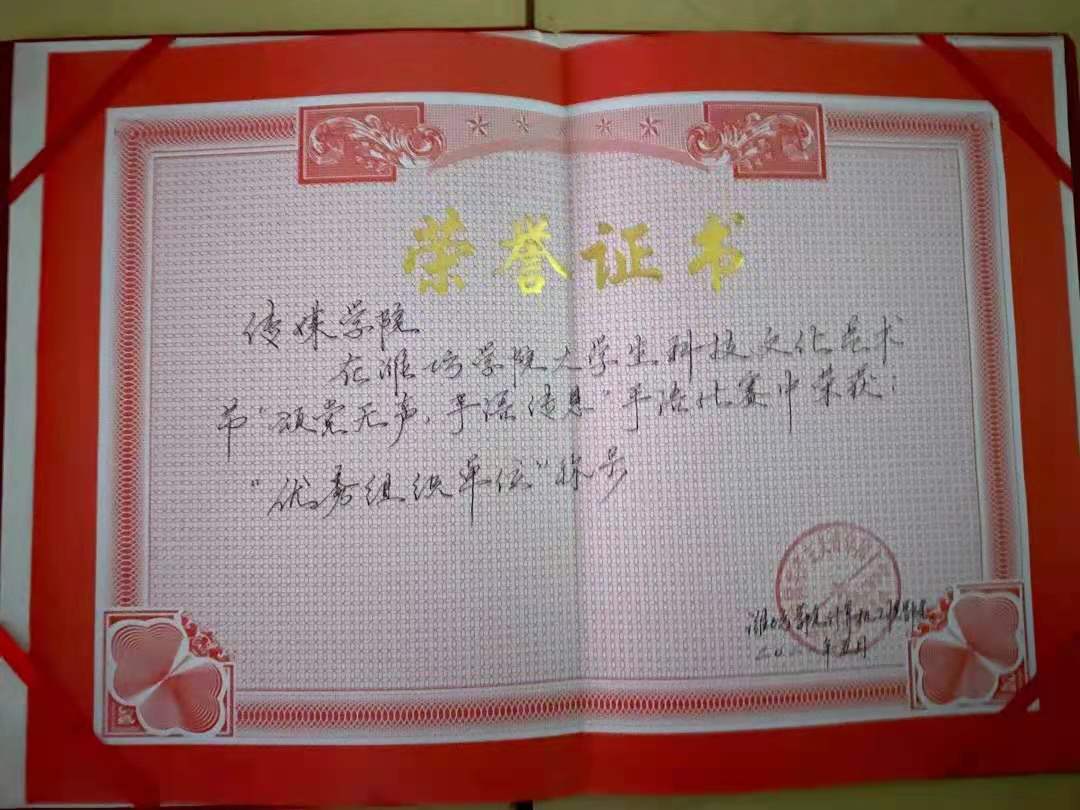 荣誉证书
传媒学院
在潍坊学院大学生科技文化艺术
节"颂党无声,手语传息"手语比赛中荣获:
"优秀组织单位"称号
年五月